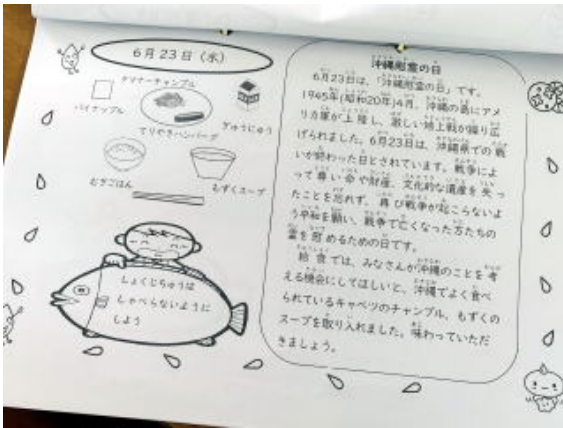 6月23日（水）
タマナーチャンプル
パイナップル
ぎゅうにゅう
てりやきハンバーグ
むぎごはん
もずくスープ
しょくじちゅうは
しゃべらないように
しよう
沖縄慰霊の日
6月23日は、「沖縄慰霊の日」です。
1945年(昭和20年)4月、沖縄の島にアメ
リカ軍が上陸し、激しい地上戦が繰り広
げられました。6月23日は、沖縄県での戦
いが終わった日とされています。戦争によ
って尊い命や財産、文化的な遺産を失っ
たことを忘れず、再び戦争が起こらないよ
う平和を願い、戦争で亡くなった方たちの
霊を慰めるための日です。
給食では、みなさんが沖縄のことを考
える機会にしてほしいと、沖縄でよく食べ
られているキャベツのチャンプル、もずくの
スープを取り入れました。味わっていただ
きましょう。